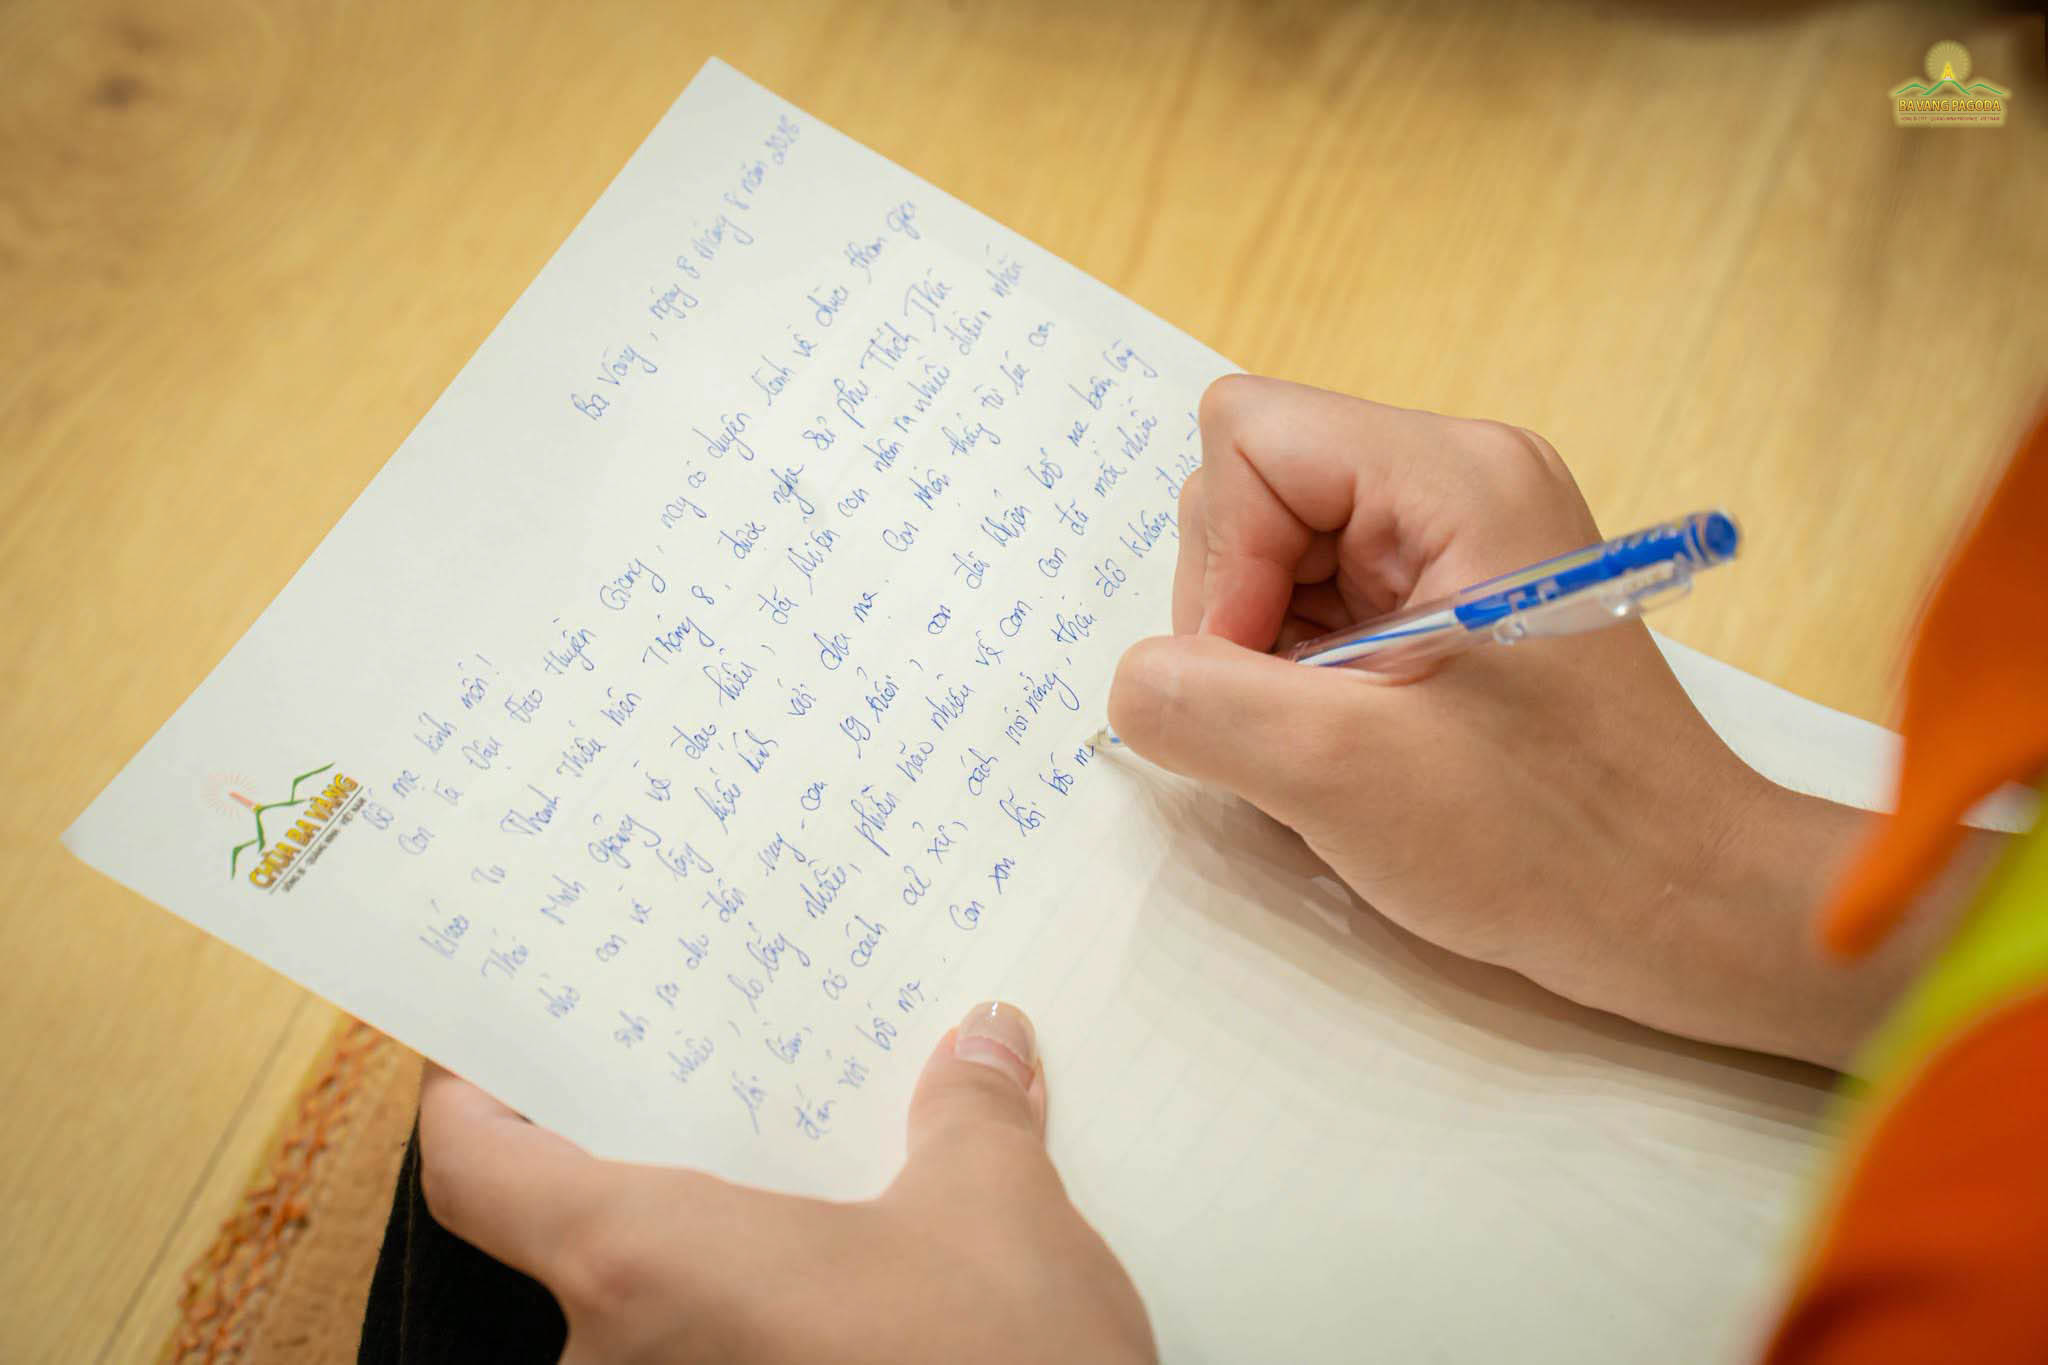 BA VANG PAGODA
CHÙA BA VÀNG
Ba Vàng, ngày 8 tháng 8 năm
Bố mẹ kính mến!
Con là Đậu Đào Thuyên Giang, nay có duyên lành về chùa tham gia
khóa Tu Thanh Thiếu niên Tháng 8, được nghe Sư phụ Thích Trúc
Thái Minh giảng về đạo hiếu, đã khiến con nhận ra nhiều điều, nhắc
nhở con về lòng hiếu kính với cha mẹ. Con nhận thấy từ lúc con
sinh ra cho đến nay - con 19 tuổi, con đã khiến bố mẹ bận lòng
nhiều, lo lắng nhiều, phiền não nhiều về con. Con đã mắc nhiều
lỗi lầm, có cách cư xử, cách nói năng, thái độ không đúng
đắn với bố mẹ. Con xin lỗi bố m